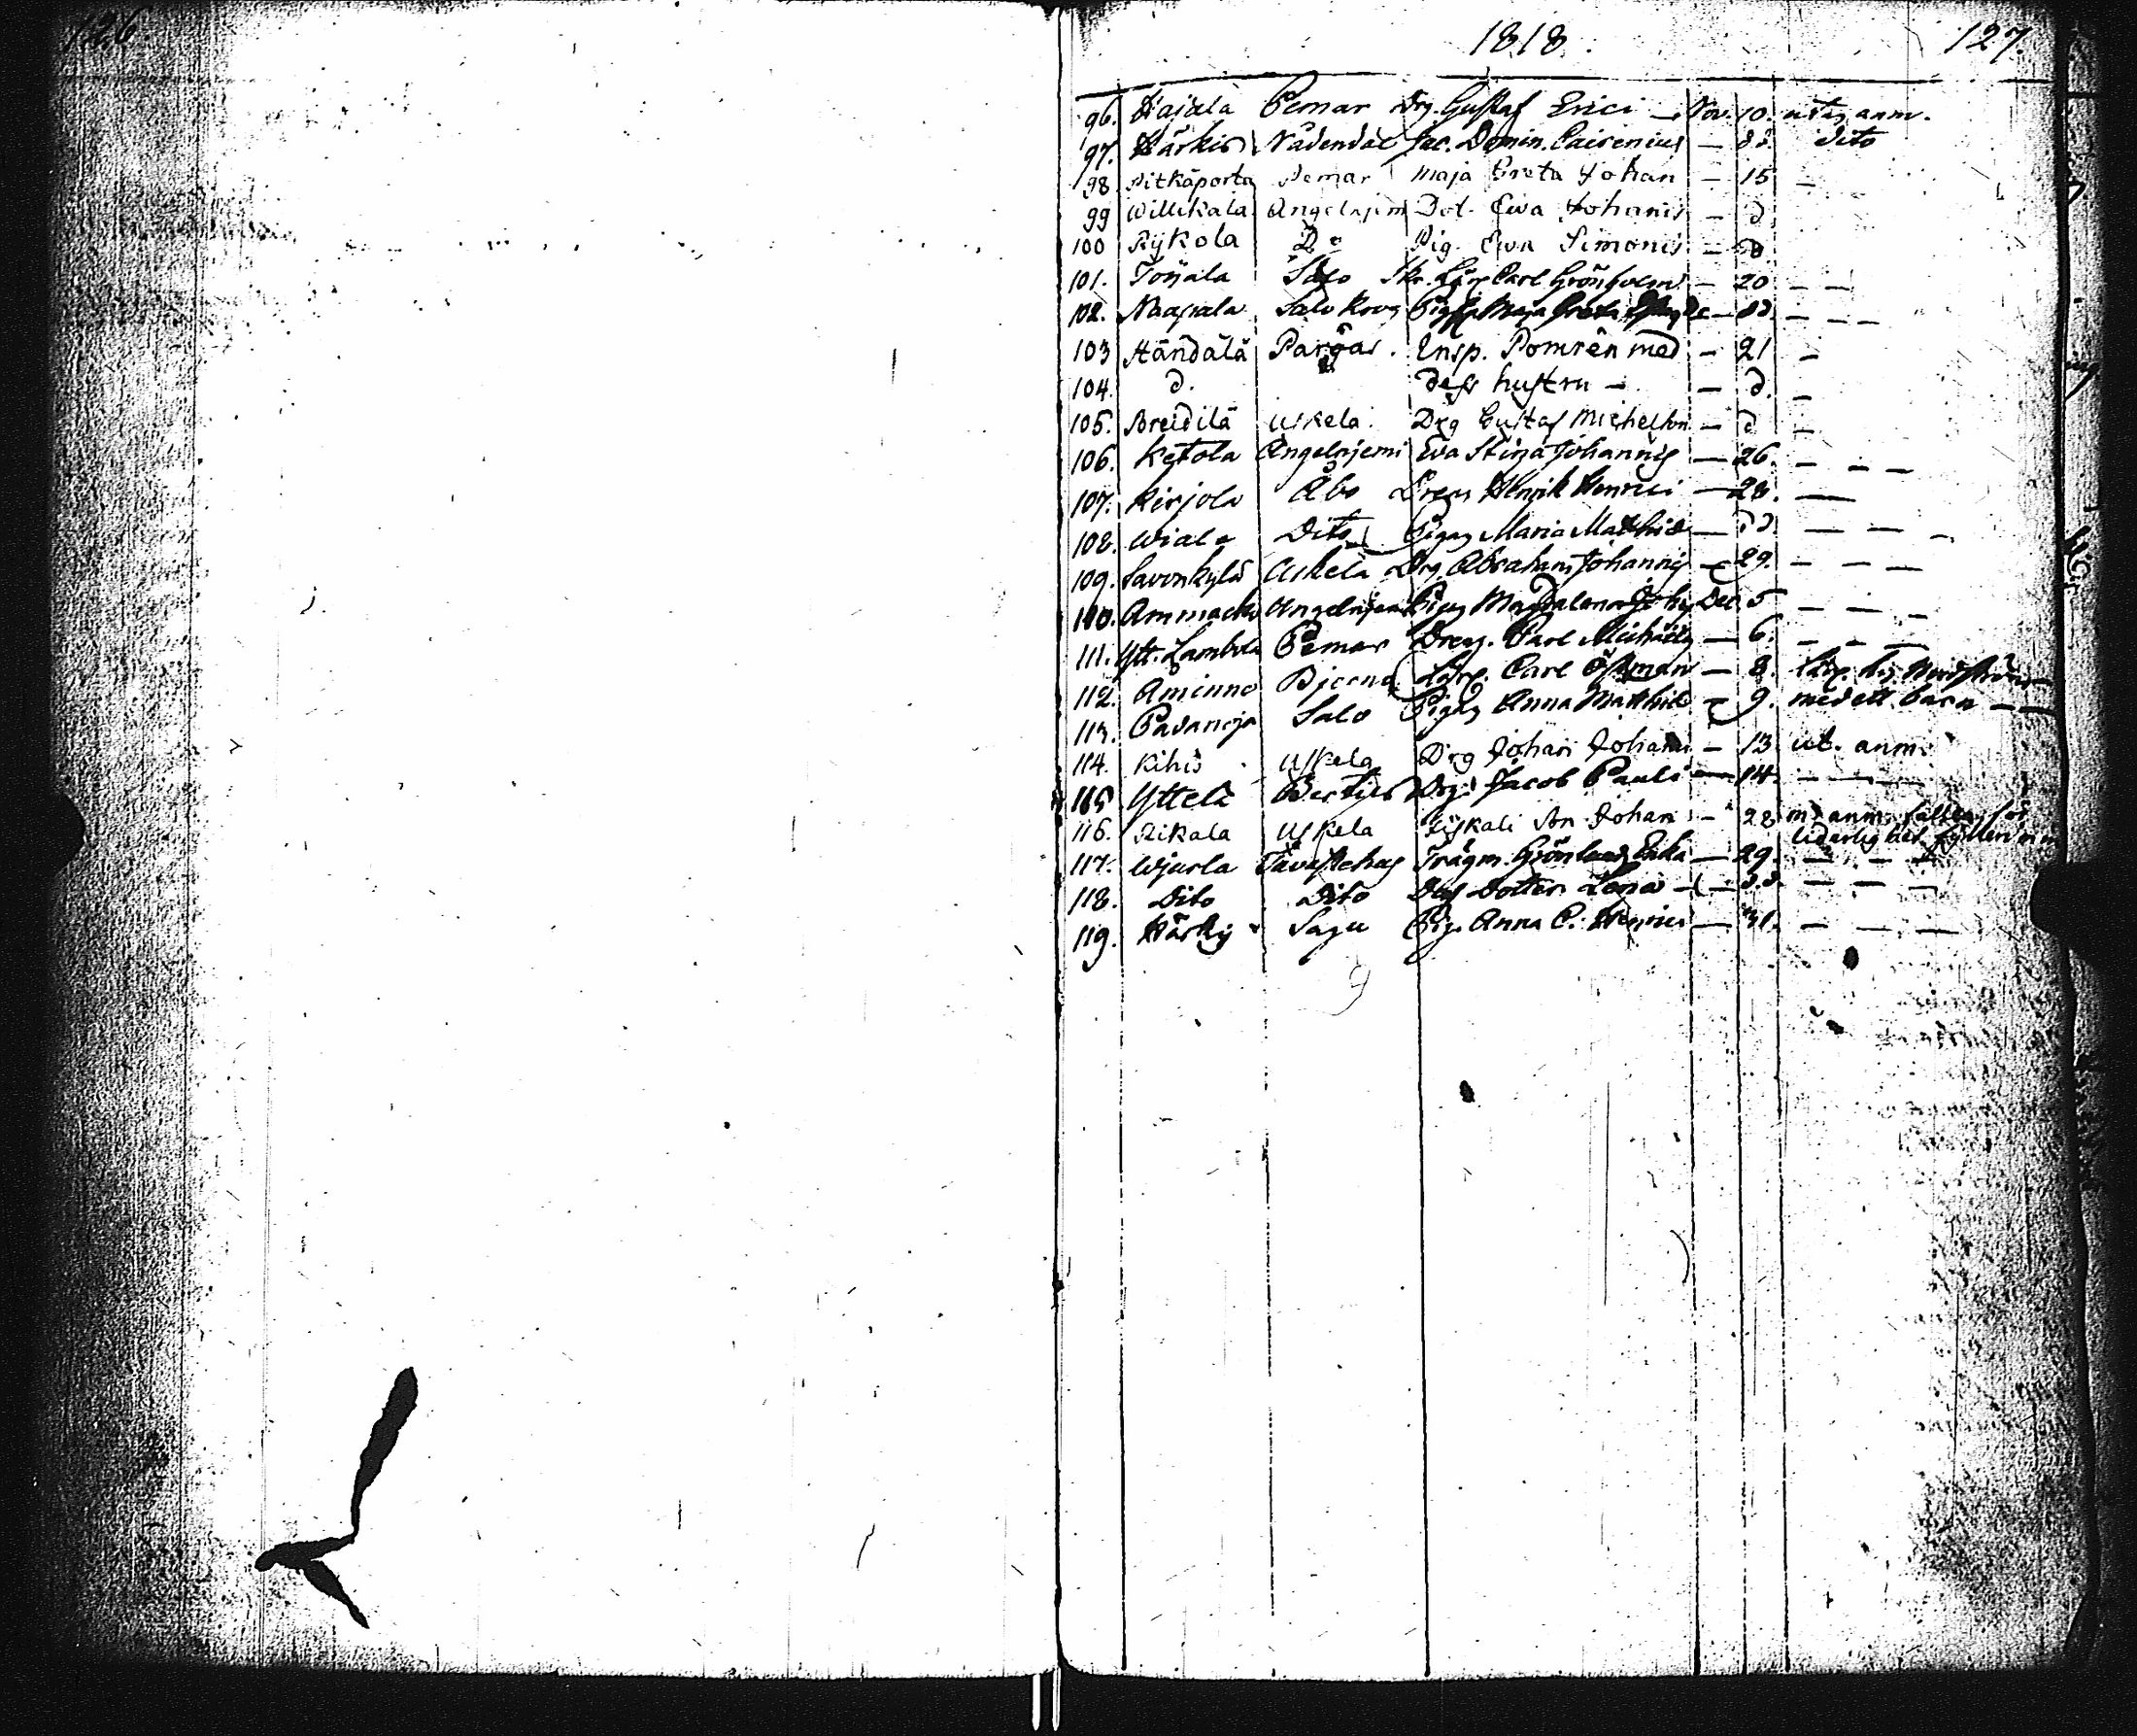 126.
1818. 127.
96. Hajala Pemar Drg. Gustaf Erici — Nov. 10. utan anm.
97. Härkis Nådendal Jac. Domin. Cairenius — dd. dito
98. Pitkäporta Pemar Maja Greta Johan — 15 —
99 Willikala Angelnjemi Dot. Ewa Johanis — d
100 Rykola Do Pig. Ewa Simonis — d
101. Toijala Salo Carl Grönholm — 20 — —
102. Naapala Salo Krog Maja Greta — dd — — —
103 Händälä Pargas. Insp. Pomrén med — 21 —
104. d. dess hustru — — d. —
105. Breidilä Uskela Drg Gustaf Michelson — d —
106. Ketola Angelnjemi Eva Stina Johannis — 26. — — —
107. Kirjola Åbo Dreng Henrik Henrici — 28. —
108. Wiala Dito Pigan Maria Matthiæ — dd — — —
109. Savonkylä Uskela Drg. Abraham Johannis — 29. — — —
110. Ammacka Angelnjemi Pigan Magdalena Joh. Dec. 5 — — —
111. Ytt. Lambola Pemar Dreng. Carl Michaels — 6. — — —
112. Aminne Bjerna Carl Östman — 8.
113. Padanoja Salo Pigan Anna Matthiæ — 9. med ett barn — —
114. Kihis Uskela Drg Johan Johans — 13 ut. anm.
115 Yttelä Drg. Jacob Pauli — 14. — — —
116. Rikala Uskela Johan — 28 m. anm. för
liderlighet fylleri
117. Wjurla Tavastehus Trägm. Grönlund Enka — 29. — — —
118. Dito Dito Des Dotter Lena — — dd. — — —
119. Härky Sagu Pig. Anna C. Henrici — 31. — — —